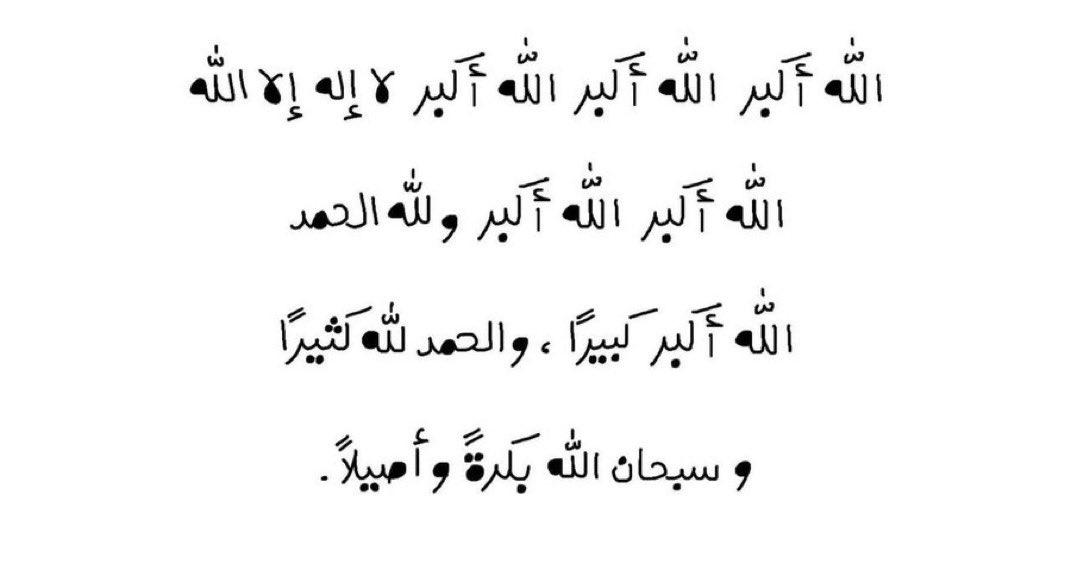 الله أكبر الله أكبر الله أكبر لا إله إلا الله
الله أكبر الله أكبر ولله الحمد
الله أكبر كبيرًا ، والحمد لله كثيرًا
و سبحان الله بكرةً وأصيلاً .